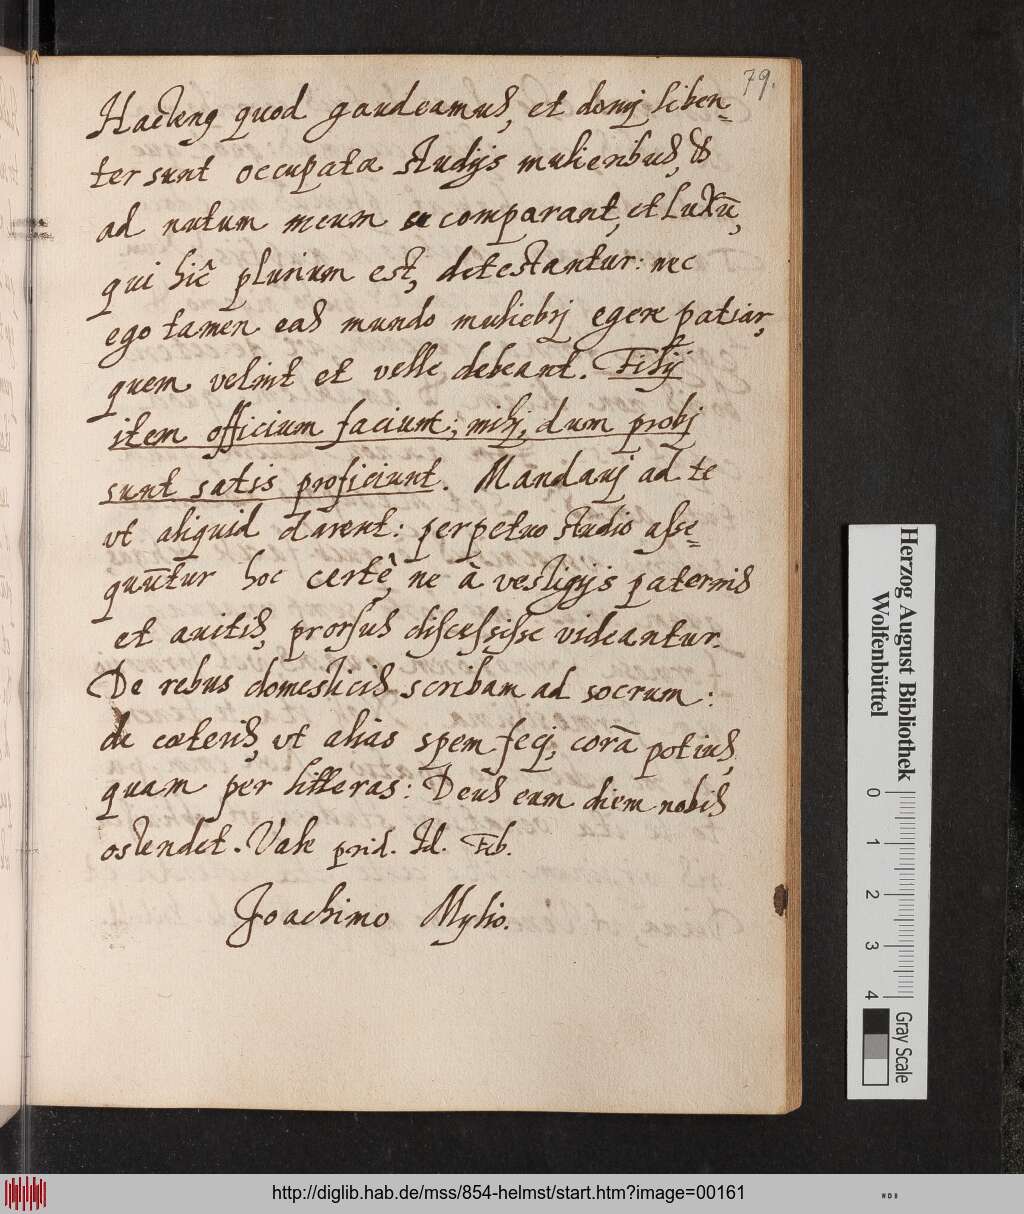 79.
Hactenq quod gaudeamus, et domj liben=
ter sunt occupatæ studijs mulieribus, &
ad nutum meum comparant, et Luxū,
qui hic̄ plurium est, detestantur: nec
ego tamen eas mundo muliebrj egere patiar,
quem velint et velle debeant. Filij
item officium faciunt; mihj, dum probj
sunt satis proficiunt. Mandauj ad te
vt aliquid darent: perpetuo studio asse=
quūtur hoc certè, ne à vestigijs paternis
et auitis, prorsus discessisse videantur.
De rebus domesticis scribam ad socrum:
de cœteris, vt alias spem fecj, corā potius,
quam per litteras: Deus eam diem nobis
ostendet. Vale prid. Id. Feb.
Joachimo Mylio.
Herzog August Bibliothek
Wolfenbüttel
0 1 2 3 4
Gray Scale
http://diglib.hab.de/mss/854-helmst/start.htm?image=00161